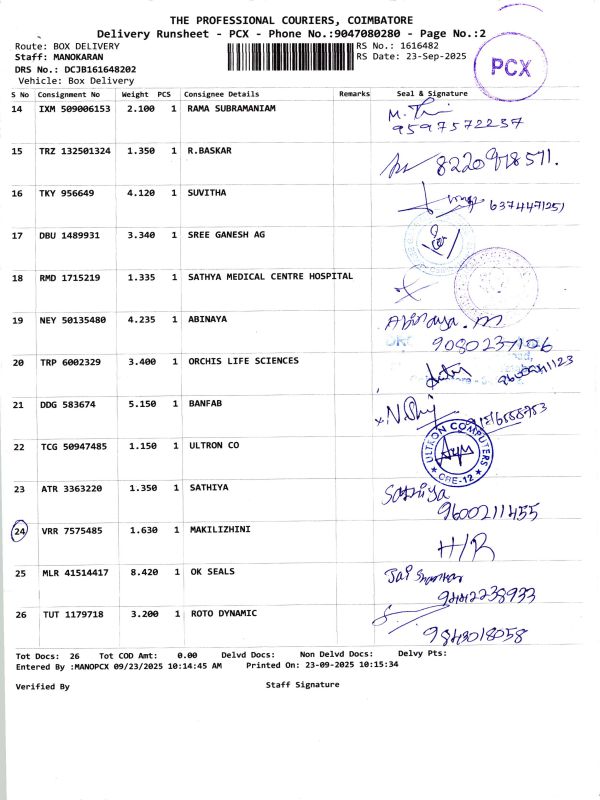 THE PROFESSIONAL COURIERS, COIMBATORE
Delivery Runsheet - PCX - Phone No.:9047080280 - Page No.:2
Route: BOX DELIVERY RS No.: 1616482
Staff: MANOKARAN RS Date: 23-Sep-2025
DRS No.: DCJB161648202
Vehicle: Box Delivery
PCX
S No Consignment No Weight PCS Consignee Details Remarks Seal & Signature
14 IXM 509006153 2.100 1 RAMA SUBRAMANIAM
9597572237
15 TRZ 132501324 1.350 1 R.BASKAR 8220978571.
16 TKY 956649 4.120 1 SUVITHA 6374471251
17 DBU 1489931 3.340 1 SREE GANESH AG
18 RMD 1715219 1.335 1 SATHYA MEDICAL CENTRE HOSPITAL
19 NEY 50135480 4.235 1 ABINAYA Abinaya.m
9080237106
20 TRP 6002329 3.400 1 ORCHIS LIFE SCIENCES
21 DDG 583674 5.150 1 BANFAB
22 TCG 50947485 1.150 1 ULTRON CO ULTRON COMPUTERS
CBE-12
23 ATR 3363220 1.350 1 SATHIYA Sathiya
9600211455
24 VRR 7575485 1.630 1 MAKILIZHINI H/R
25 MLR 41514417 8.420 1 OK SEALS
9442238933
26 TUT 1179718 3.200 1 ROTO DYNAMIC
9843018058
Tot Docs: 26 Tot COD Amt: 0.00 Delvd Docs: Non Delvd Docs: Delvy Pts:
Entered By :MANOPCX 09/23/2025 10:14:45 AM Printed On: 23-09-2025 10:15:34
Verified By Staff Signature